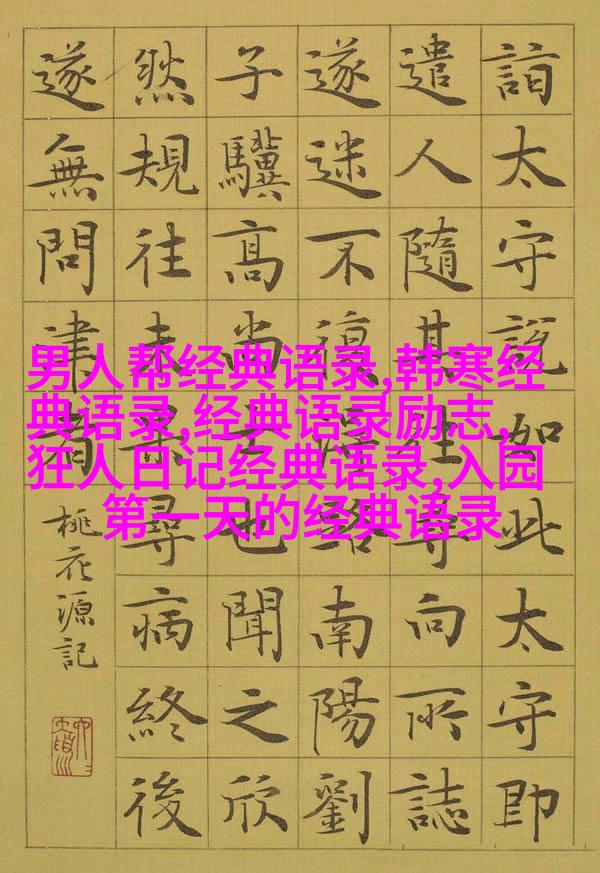 詣太守説如此太守即
遣人隨其往尋向所誌
遂迷不復得路南陽劉
子驥高尚士也聞之欣
然規往未果尋病終後
遂無問津者
桃花源記
男人帮经典语录,韩寒经
典语录,经典语录励志,
狂人日记经典语录,入园
第一天的经典语录